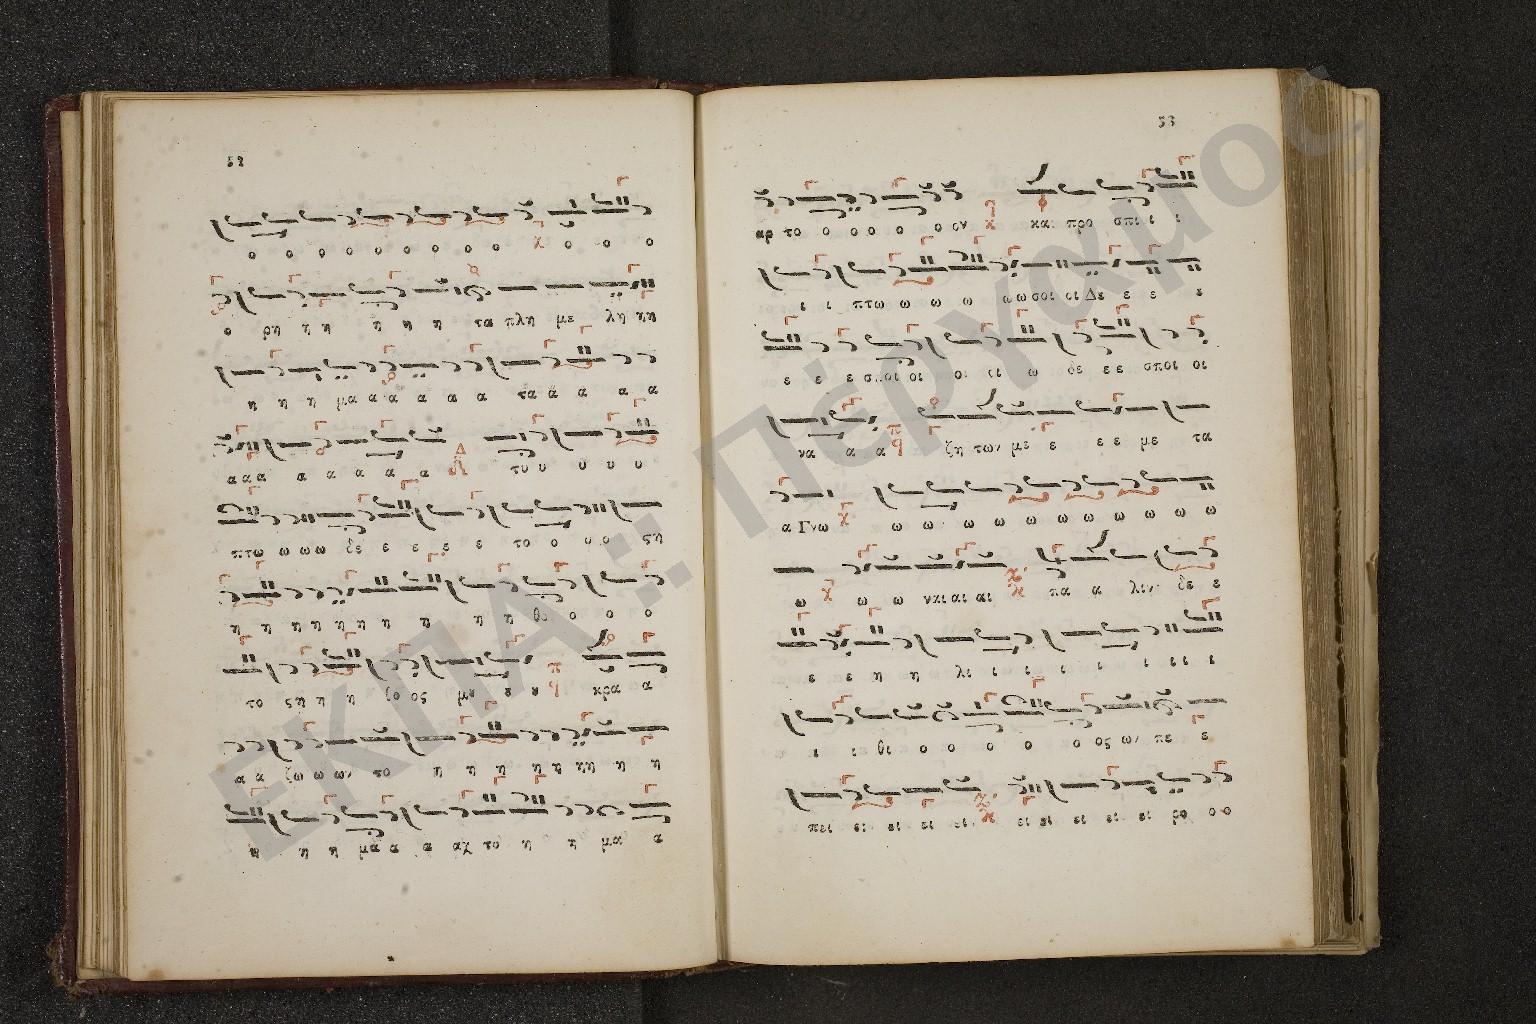 52
ο ο ο ο ο ο ο ο ο χ ο ο ο
ο ρη η η η η η τα πλη με λη ηη
η η η μα α α α α α τα α α α α
α α α α α α α α Δ του υ υ υ υ
πτω ω ω ω δε ε ε ε ε ε το ο ο ο ςη
η η η η η η η η η η θο ο ο ο
το ςη η η θο ος μυ υ υ π q κρα α
α α ζω ω ων το η η η η η ηη η η
η η η μα α α αχ το η η μα α
53
αρ το ο ο ο ο ο ον χ και προ σπι ι ι
ι ι πτω ω ω ω ω ω σοι οι Δε ε ε ε
ε ε ε σποι οι οι οι ω δε ε ε σποι οι
να α α π q ζη των με ε ε ε με τα
α Γνω χ ω ω ω ω ω ω ω ω ω ω ω
ω χ ω ω ναι αι αι πα α λιν δε ε
ε ε η η λι ι ι ι ι ι ι ι ι
ι ι θι ο ο ο ο ο ος ων πε ε
πει ει ει ει ει ει ει ει ει ει ρο ο ο
ΕΚΠΑ :: Πέργαμος